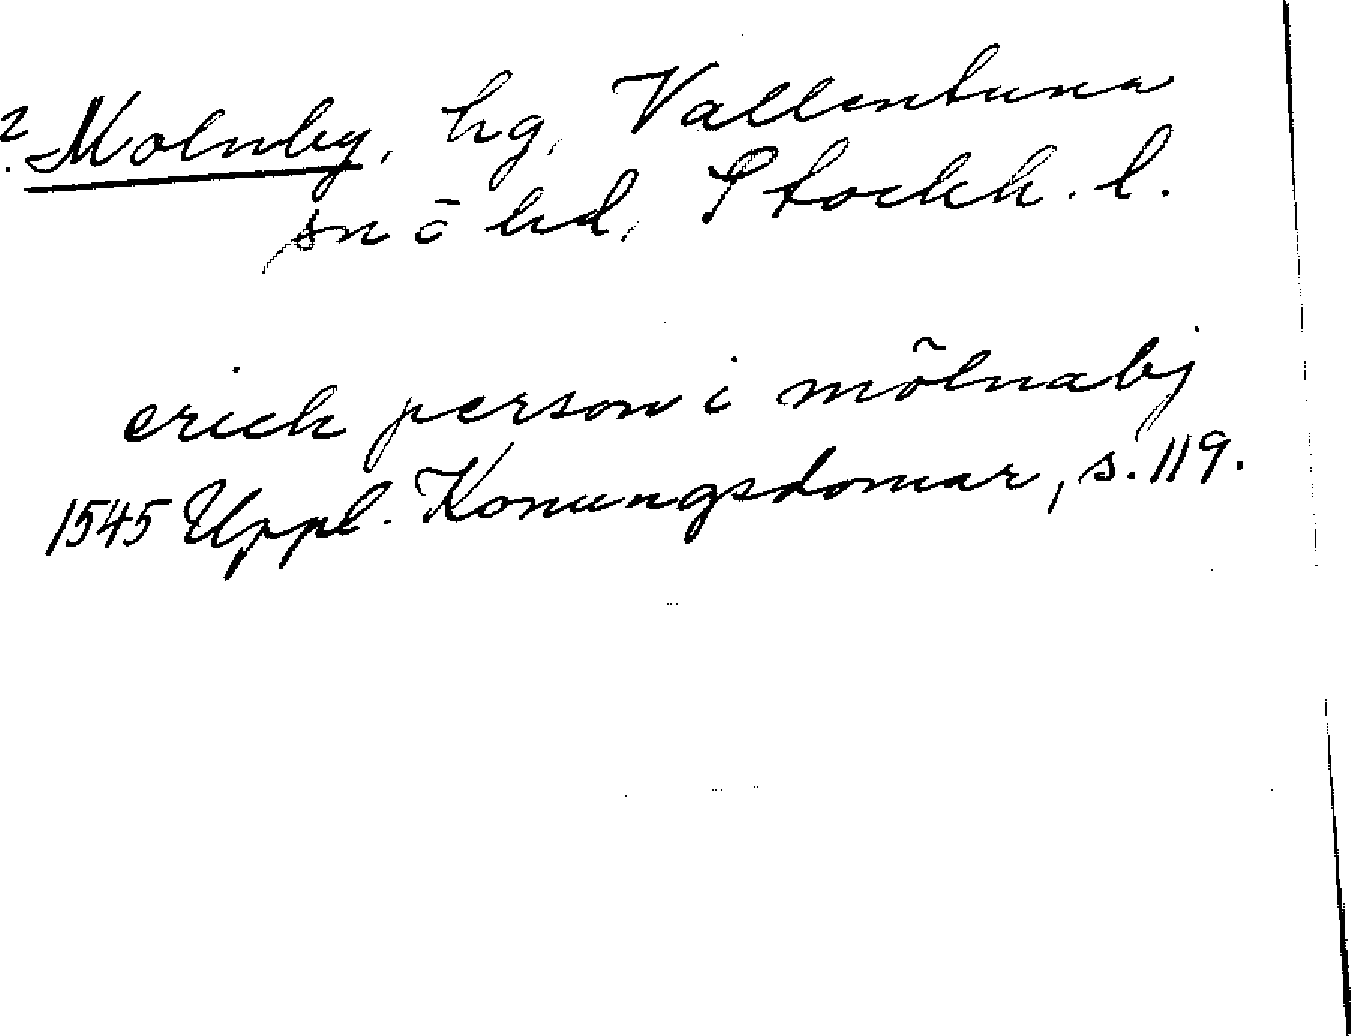 ? Molnby, hg, Vallentuna
sn o hd, Stockh. l.
erich person i mölnabj
1545 Uppl. Konungsdomar, s. 119.